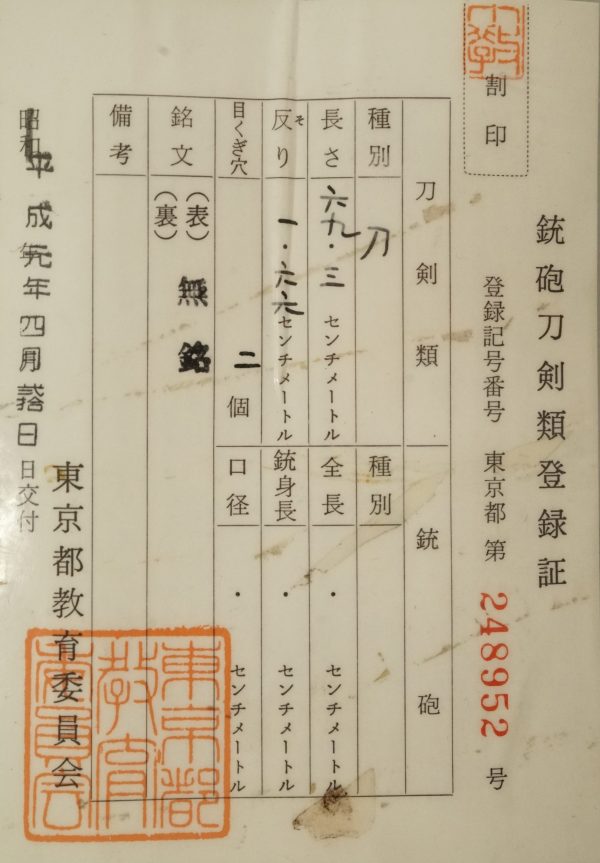 銃砲刀剣類登録証
割印
登録記号番号 東京都 第 248952 号
刀剣類 銃砲
種別 刀 種別
長さ 六九・三 センチメートル 全長 ・ センチメートル
反り そ 一・六六 センチメートル 銃身長 ・ センチメートル
目くぎ穴 二 個 口径 ・ センチメートル
銘文 (表) 無銘
(裏)
備考
東京都教育委員会
東京都教育委員会
昭和 平成元年 年 四月 日 日交付